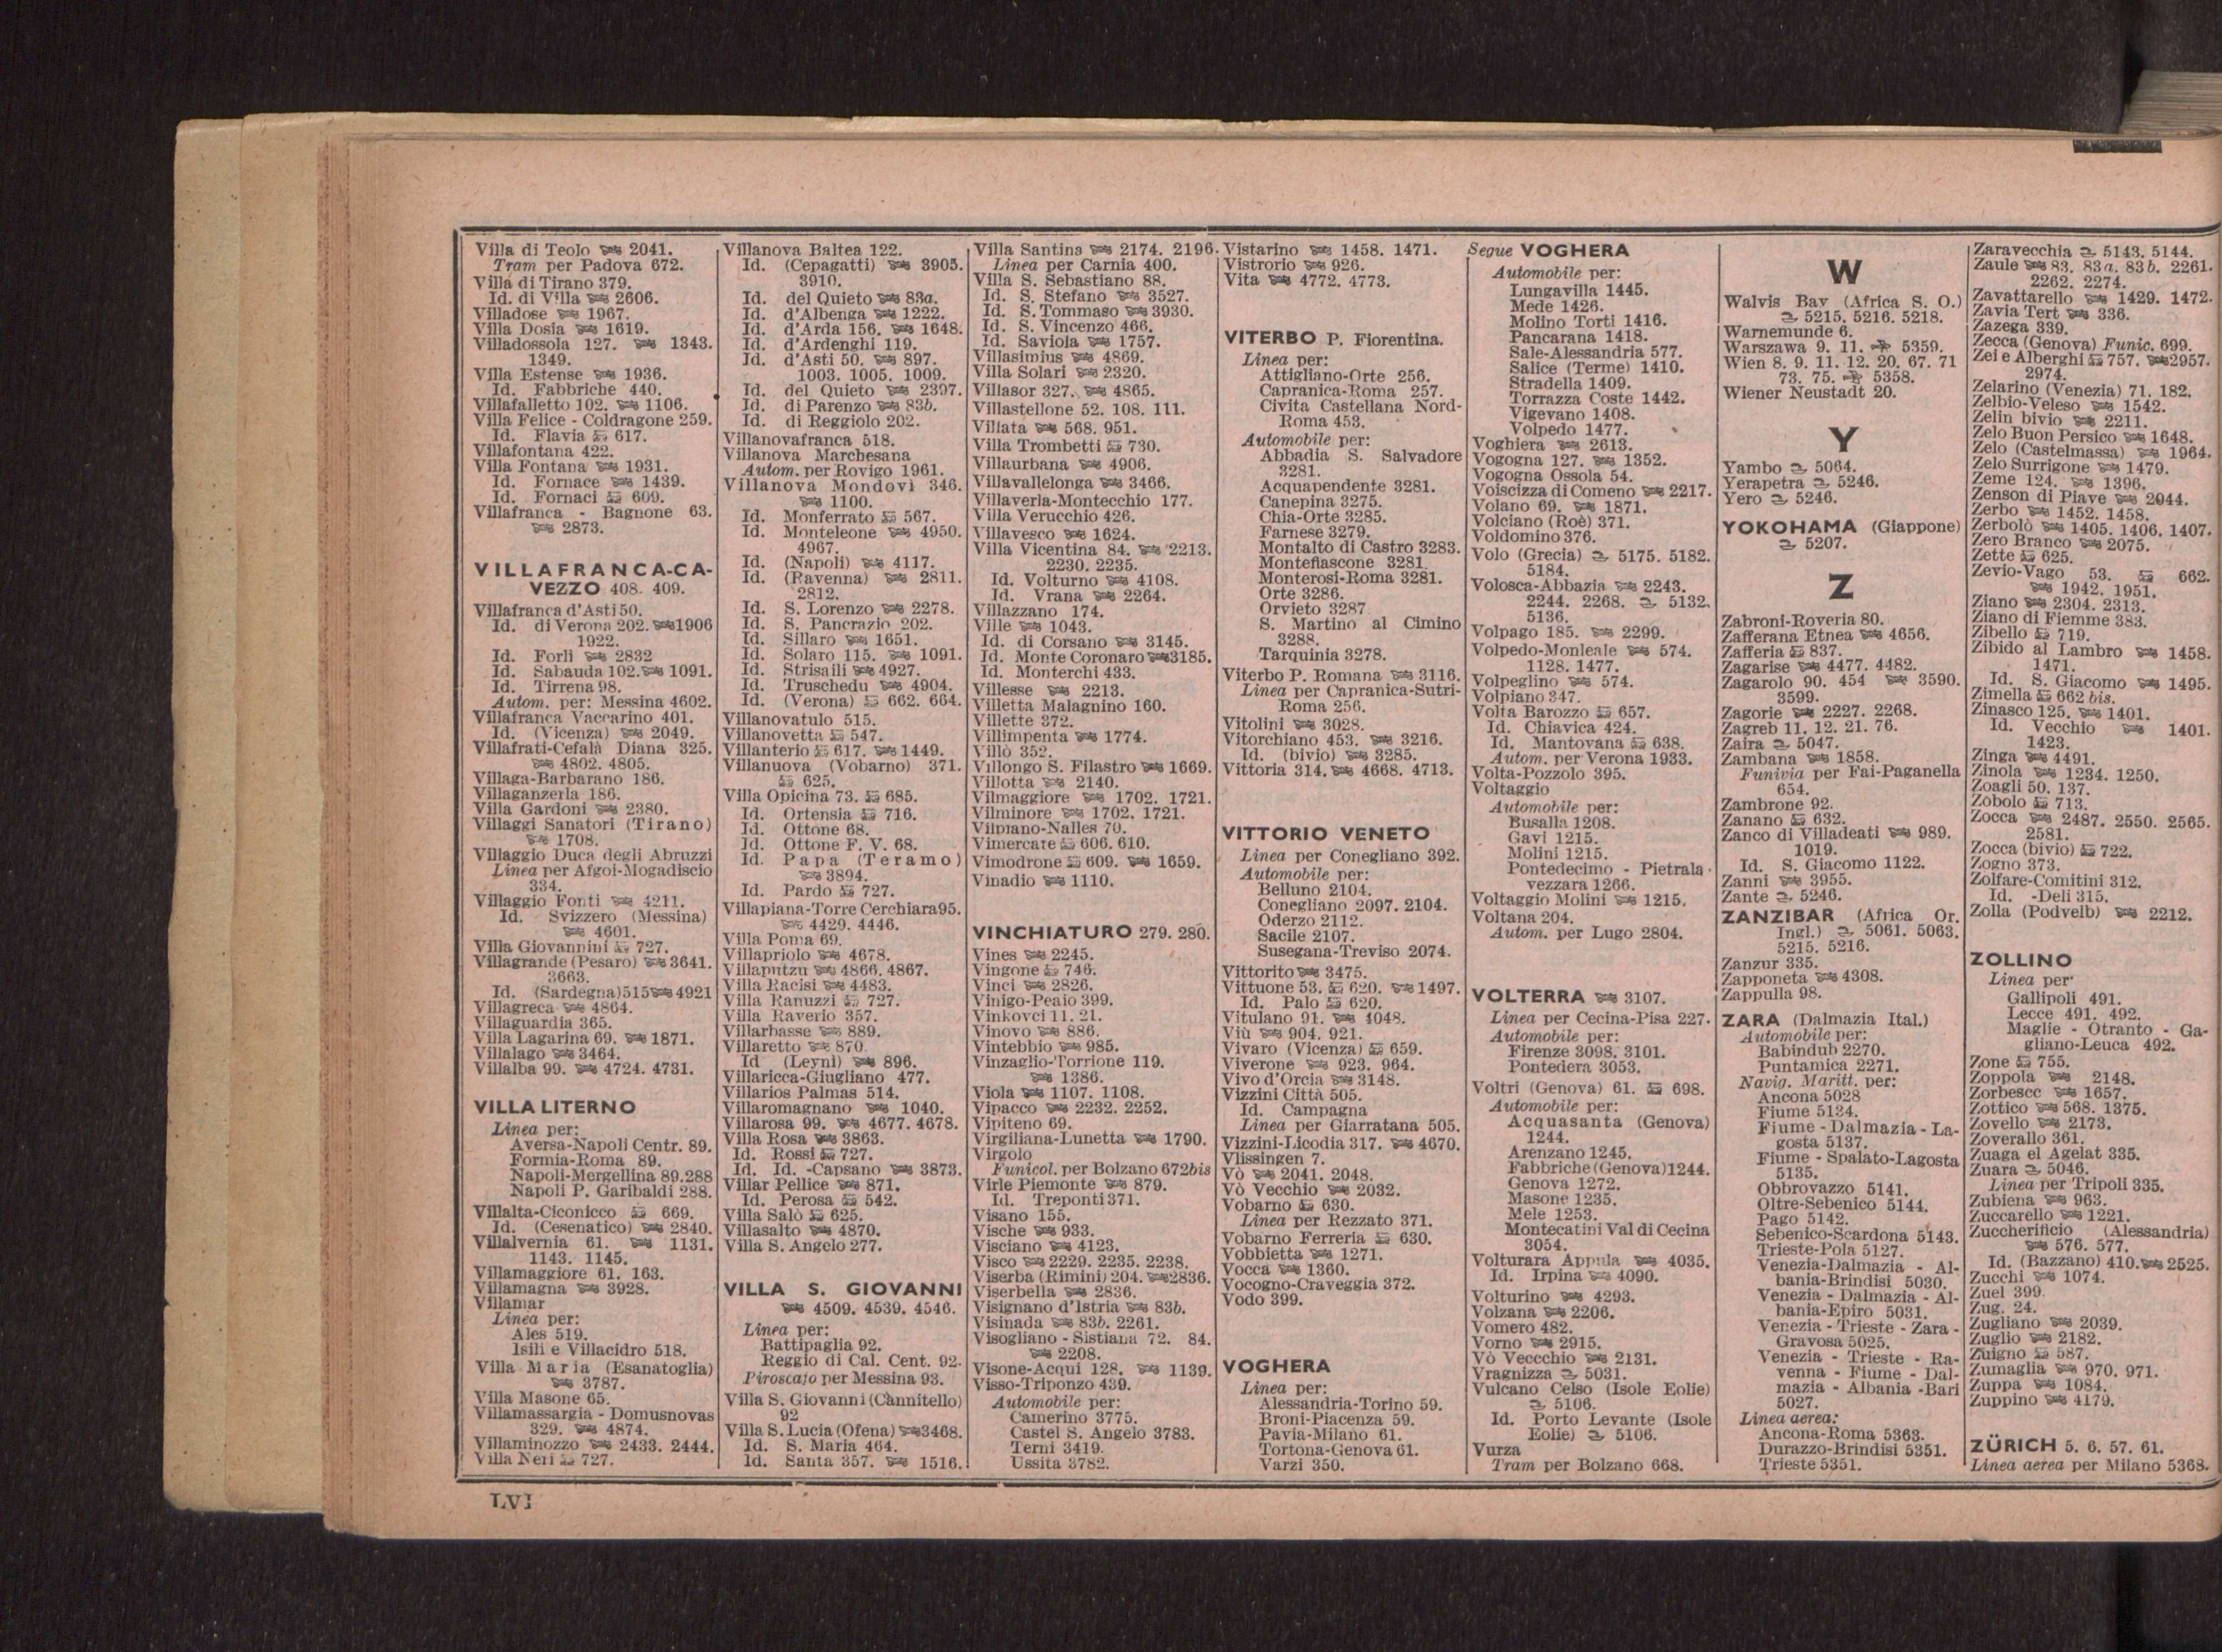 Villa di Teolo 2041.
Tram per Padova 672.
Villa di Tirano 379.
Id. di Villa 2606.
Villadose 1967.
Villa Dosia 1619.
Villadossola 127. 1343.
1349.
Villa Estense 1936.
Id. Fabbriche 440.
Villafalletto 102. 1106.
Villa Felice - Coldragone 259.
Id. Flavia 617.
Villafontana 422.
Villa Fontana 1931.
Id. Fornace 1439.
Id. Fornaci 609.
Villafranca - Bagnone 63.
2873.
VILLAFRANCA-CA-
VEZZO 408. 409.
Villafranca d'Asti 50.
Id. di Verona 202. 1906
1922.
Id. Forlì 2832
Id. Sabauda 102. 1091.
Id. Tirrena 98.
Autom. per: Messina 4602.
Villafranca Vaccarino 401.
Id. (Vicenza) 2049.
Villafrati-Cefalà Diana 325.
4802. 4805.
Villaga-Barbarano 186.
Villaganzerla 186.
Villa Gardoni 2380.
Villaggi Sanatori (Tirano)
1708.
Villaggio Duca degli Abruzzi
Linea per Afgoi-Mogadiscio
334.
Villaggio Fonti 4211.
Id. Svizzero (Messina)
4601.
Villa Giovannini 727.
Villagrande (Pesaro) 3641.
3663.
Id. (Sardegna) 515 4921
Villagreca 4864.
Villaguardia 365.
Villa Lagarina 69. 1871.
Villalago 3464.
Villalba 99. 4724. 4731.
VILLA LITERNO
Linea per:
Aversa-Napoli Centr. 89.
Formia-Roma 89.
Napoli-Mergellina 89.288
Napoli P. Garibaldi 288.
Villalta-Ciconicco 669.
Id. (Cesenatico) 2840.
Villalvernia 61. 1131.
1143. 1145.
Villamaggiore 61. 163.
Villamagna 3928.
Villamar
Linea per:
Ales 519.
Isili e Villacidro 518.
Villa Maria (Esanatoglia)
3787.
Villa Masone 65.
Villamassargia - Domusnovas
329. 4874.
Villaminozzo 2433. 2444.
Villa Neri 727.
Villanova Baltea 122.
Id. (Cepagatti) 3905.
3910.
Id. del Quieto 83a.
Id. d'Albenga 1222.
Id. d'Arda 156. 1648.
Id. d'Ardenghi 119.
Id. d'Asti 50. 897.
1003. 1005. 1009.
Id. del Quieto 2397.
Id. di Parenzo 83b.
Id. di Reggiolo 202.
Villanovafranca 518.
Villanova Marchesana
Autom. per Rovigo 1961.
Villanova Mondovì 346.
1100.
Id. Monferrato 567.
Id. Monteleone 4950.
4967.
Id. (Napoli) 4117.
Id. (Ravenna) 2811.
2812.
Id. S. Lorenzo 2278.
Id. S. Pancrazio 202.
Id. Sillaro 1651.
Id. Solaro 115. 1091.
Id. Strisaili 4927.
Id. Truschedu 4904.
Id. (Verona) 662. 664.
Villanovatulo 515.
Villanovetta 547.
Villanterio 617. 1449.
Villanuova (Vobarno) 371.
625.
Villa Opicina 73. 685.
Id. Ortensia 716.
Id. Ottone 68.
Id. Ottone F. V. 68.
Id. Papa (Teramo)
3894.
Id. Pardo 727.
Villapiana-Torre Cerchiara 95.
4429. 4446.
Villa Poma 69.
Villapriolo 4678.
Villaputzu 4866. 4867.
Villa Racisi 4483.
Villa Ranuzzi 727.
Villa Raverio 357.
Villarbasse 889.
Villaretto 870.
Id (Leynì) 896.
Villaricca-Giugliano 477.
Villarios Palmas 514.
Villaromagnano 1040.
Villarosa 99. 4677. 4678.
Villa Rosa 3863.
Id. Rossi 727.
Id. Id. -Capsano 3873.
Villar Pellice 871.
Id. Perosa 542.
Villa Salò 625.
Villasalto 4870.
Villa S. Angelo 277.
VILLA S. GIOVANNI
4509. 4539. 4546.
Linea per:
Battipaglia 92.
Reggio di Cal. Cent. 92.
Piroscafo per Messina 93.
Villa S. Giovanni (Cannitello)
92
Villa S. Lucia (Ofena) 3468.
Id. S. Maria 464.
Id. Santa 357. 1516.
Villa Santina 2174. 2196.
Linea per Carnia 400.
Villa S. Sebastiano 88.
Id. S. Stefano 3527.
Id. S. Tommaso 3930.
Id. S. Vincenzo 466.
Id. Saviola 1757.
Villasimius 4869.
Villa Solari 2320.
Villasor 327. 4865.
Villastellone 52. 108. 111.
Villata 568. 951.
Villa Trombetti 730.
Villaurbana 4906.
Villavallelonga 3466.
Villaverla-Montecchio 177.
Villa Verucchio 426.
Villavesco 1624.
Villa Vicentina 84. 2213.
2230. 2235.
Id. Volturno 4108.
Id. Vrana 2264.
Villazzano 174.
Ville 1043.
Id. di Corsano 3145.
Id. Monte Coronaro 3185.
Id. Monterchi 433.
Villesse 2213.
Villetta Malagnino 160.
Villette 372.
Villimpenta 1774.
Villò 352.
Villongo S. Filastro 1669.
Villotta 2140.
Vilmaggiore 1702. 1721.
Vilminore 1702. 1721.
Vilpiano-Nalles 70.
Vimercate 606. 610.
Vimodrone 609. 1659.
Vinadio 1110.
VINCHIATURO 279. 280.
Vines 2245.
Vingone 746.
Vinci 2826.
Vinigo-Peaio 399.
Vinkovci 11. 21.
Vinovo 886.
Vintebbio 985.
Vinzaglio-Torrione 119.
1386.
Viola 1107. 1108.
Vipacco 2232. 2252.
Vipiteno 69.
Virgiliana-Lunetta 1790.
Virgolo
Funicol. per Bolzano 672bis
Virle Piemonte 879.
Id. Treponti 371.
Visano 155.
Vische 933.
Visciano 4123.
Visco 2229. 2235. 2238.
Viserba (Rimini) 204. 2836.
Viserbella 2836.
Visignano d'Istria 83b.
Visinada 83b. 2261.
Visogliano - Sistiana 72. 84.
2208.
Visone-Acqui 128. 1139.
Visso-Triponzo 439.
Automobile per:
Camerino 3775.
Castel S. Angelo 3783.
Terni 3419.
Ussita 3782.
Vistarino 1458. 1471.
Vistrorio 926.
Vita 4772. 4773.
VITERBO P. Fiorentina.
Linea per:
Attigliano-Orte 256.
Capranica-Roma 257.
Civita Castellana Nord-
Roma 453.
Automobile per:
Abbadia S. Salvadore
3281.
Acquapendente 3281.
Canepina 3275.
Chia-Orte 3285.
Farnese 3279.
Montalto di Castro 3283.
Montefiascone 3281.
Monterosi-Roma 3281.
Orte 3286.
Orvieto 3287
S. Martino al Cimino
3288.
Tarquinia 3278.
Viterbo P. Romana 3116.
Linea per Capranica-Sutri-
Roma 256.
Vitolini 3028.
Vitorchiano 453. 3216.
Id. (bivio) 3285.
Vittoria 314. 4668. 4713.
VITTORIO VENETO
Linea per Conegliano 392.
Automobile per:
Belluno 2104.
Conegliano 2097. 2104.
Oderzo 2112.
Sacile 2107.
Susegana-Treviso 2074.
Vittorito 3475.
Vittuone 53. 620. 1497.
Id. Palo 620.
Vitulano 91. 4048.
Viù 904. 921.
Vivaro (Vicenza) 659.
Viverone 923. 964.
Vivo d'Orcia 3148.
Vizzini Città 505.
Id. Campagna
Linea per Giarratana 505.
Vizzini-Licodia 317. 4670.
Vlissingen 7.
Vò 2041. 2048.
Vò Vecchio 2032.
Vobarno 630.
Linea per Rezzato 371.
Vobarno Ferreria 630.
Vobbietta 1271.
Vocca 1360.
Vocogno-Craveggia 372.
Vodo 399.
VOGHERA
Linea per:
Alessandria-Torino 59.
Broni-Piacenza 59.
Pavia-Milano 61.
Tortona-Genova 61.
Varzi 350.
Segue VOGHERA
Automobile per:
Lungavilla 1445.
Mede 1426.
Molino Torti 1416.
Pancarana 1418.
Sale-Alessandria 577.
Salice (Terme) 1410.
Stradella 1409.
Torrazza Coste 1442.
Vigevano 1408.
Volpedo 1477.
Voghiera 2613.
Vogogna 127. 1352.
Vogogna Ossola 54.
Voiscizza di Comeno 2217.
Volano 69. 1871.
Volciano (Roè) 371.
Voldomino 376.
Volo (Grecia) 5175. 5182.
5184.
Volosca-Abbazia 2243.
2244. 2268. 5132.
5136.
Volpago 185. 2299.
Volpedo-Monleale 574.
1128. 1477.
Volpeglino 574.
Volpiano 347.
Volta Barozzo 657.
Id. Chiavica 424.
Id. Mantovana 638.
Autom. per Verona 1933.
Volta-Pozzolo 395.
Voltaggio
Automobile per:
Busalla 1208.
Gavi 1215.
Molini 1215.
Pontedecimo - Pietrala-
vezzara 1266.
Voltaggio Molini 1215.
Voltana 204.
Autom. per Lugo 2804.
VOLTERRA 3107.
Linea per Cecina-Pisa 227.
Automobile per:
Firenze 3098. 3101.
Pontedera 3053.
Voltri (Genova) 61. 698.
Automobile per:
Acquasanta (Genova)
1244.
Arenzano 1245.
Fabbriche (Genova) 1244.
Genova 1272.
Masone 1235.
Mele 1253.
Montecatini Val di Cecina
3054.
Volturara Appula 4035.
Id. Irpina 4090.
Volturino 4293.
Volzana 2206.
Vomero 482.
Vorno 2915.
Vò Veccchio 2131.
Vragnizza 5031.
Vulcano Celso (Isole Eolie)
5106.
Id. Porto Levante (Isole
Eolie) 5106.
Vurza
Tram per Bolzano 668.
W
Walvis Bay (Africa S. O.)
5215. 5216. 5218.
Warnemunde 6.
Warszawa 9. 11. 5359.
Wien 8. 9. 11. 12. 20. 67. 71
73. 75. 5358.
Wiener Neustadt 20.
Y
Yambo 5064.
Yerapetra 5246.
Yero 5246.
YOKOHAMA (Giappone)
5207.
Z
Zabroni-Roveria 80.
Zafferana Etnea 4656.
Zafferia 837.
Zagarise 4477. 4482.
Zagarolo 90. 454 3590.
3599.
Zagorie 2227. 2268.
Zagreb 11. 12. 21. 76.
Zaira 5047.
Zambana 1858.
Funivia per Fai-Paganella
654.
Zambrone 92.
Zanano 632.
Zanco di Villadeati 989.
1019.
Id. S. Giacomo 1122.
Zanni 3955.
Zante 5246.
ZANZIBAR (Africa Or.
Ingl.) 5061. 5063.
5215. 5216.
Zanzur 335.
Zapponeta 4308.
Zappulla 98.
ZARA (Dalmazia Ital.)
Automobile per:
Babindub 2270.
Puntamica 2271.
Navig. Maritt. per:
Ancona 5028
Fiume 5134.
Fiume - Dalmazia - La-
gosta 5137.
Fiume - Spalato-Lagosta
5135.
Obbrovazzo 5141.
Oltre-Sebenico 5144.
Pago 5142.
Sebenico-Scardona 5143.
Trieste-Pola 5127.
Venezia-Dalmazia - Al-
bania-Brindisi 5030.
Venezia - Dalmazia - Al-
bania-Epiro 5031.
Venezia - Trieste - Zara -
Gravosa 5025.
Venezia - Trieste - Ra-
venna - Fiume - Dal-
mazia - Albania -Bari
5027.
Linea aerea:
Ancona-Roma 5363.
Durazzo-Brindisi 5351.
Trieste 5351.
Zaravecchia 5143. 5144.
Zaule 83. 83a. 83b. 2261.
2262. 2274.
Zavattarello 1429. 1472.
Zavia Tert 336.
Zazega 339.
Zecca (Genova) Funic. 699.
Zei e Alberghi 757. 2957.
2974.
Zelarino (Venezia) 71. 182.
Zelbio-Veleso 1542.
Zelin bivio 2211.
Zelo Buon Persico 1648.
Zelo (Castelmassa) 1964.
Zelo Surrigone 1479.
Zeme 124. 1396.
Zenson di Piave 2044.
Zerbo 1452. 1458.
Zerbolò 1405. 1406. 1407.
Zero Branco 2075.
Zette 625.
Zevio-Vago 53. 662.
1942. 1951.
Ziano 2304. 2313.
Ziano di Fiemme 383.
Zibello 719.
Zibido al Lambro 1458.
1471.
Id. S. Giacomo 1495.
Zimella 662 bis.
Zinasco 125. 1401.
Id. Vecchio 1401.
1423.
Zinga 4491.
Zinola 1234. 1250.
Zoagli 50. 137.
Zobolo 713.
Zocca 2487. 2550. 2565.
2581.
Zocca (bivio) 722.
Zogno 373.
Zolfare-Comitini 312.
Id. -Deli 315.
Zolla (Podvelb) 2212.
ZOLLINO
Linea per
Gallipoli 491.
Lecce 491. 492.
Maglie - Otranto - Ga-
gliano-Leuca 492.
Zone 755.
Zoppola 2148.
Zorbesce 1657.
Zottico 568. 1375.
Zovello 2173.
Zoverallo 361.
Zuaga el Agelat 335.
Zuara 5046.
Linea per Tripoli 335.
Zubiena 963.
Zuccarello 1221.
Zuccherificio (Alessandria)
576. 577.
Id. (Bazzano) 410. 2525.
Zucchi 1074.
Zuel 399
Zug. 24.
Zugliano 2039.
Zuglio 2182.
Zuigno 587.
Zumaglia 970. 971.
Zuppa 1084.
Zuppino 4179.
ZÜRICH 5. 6. 57. 61.
Linea aerea per Milano 5368.
LVI